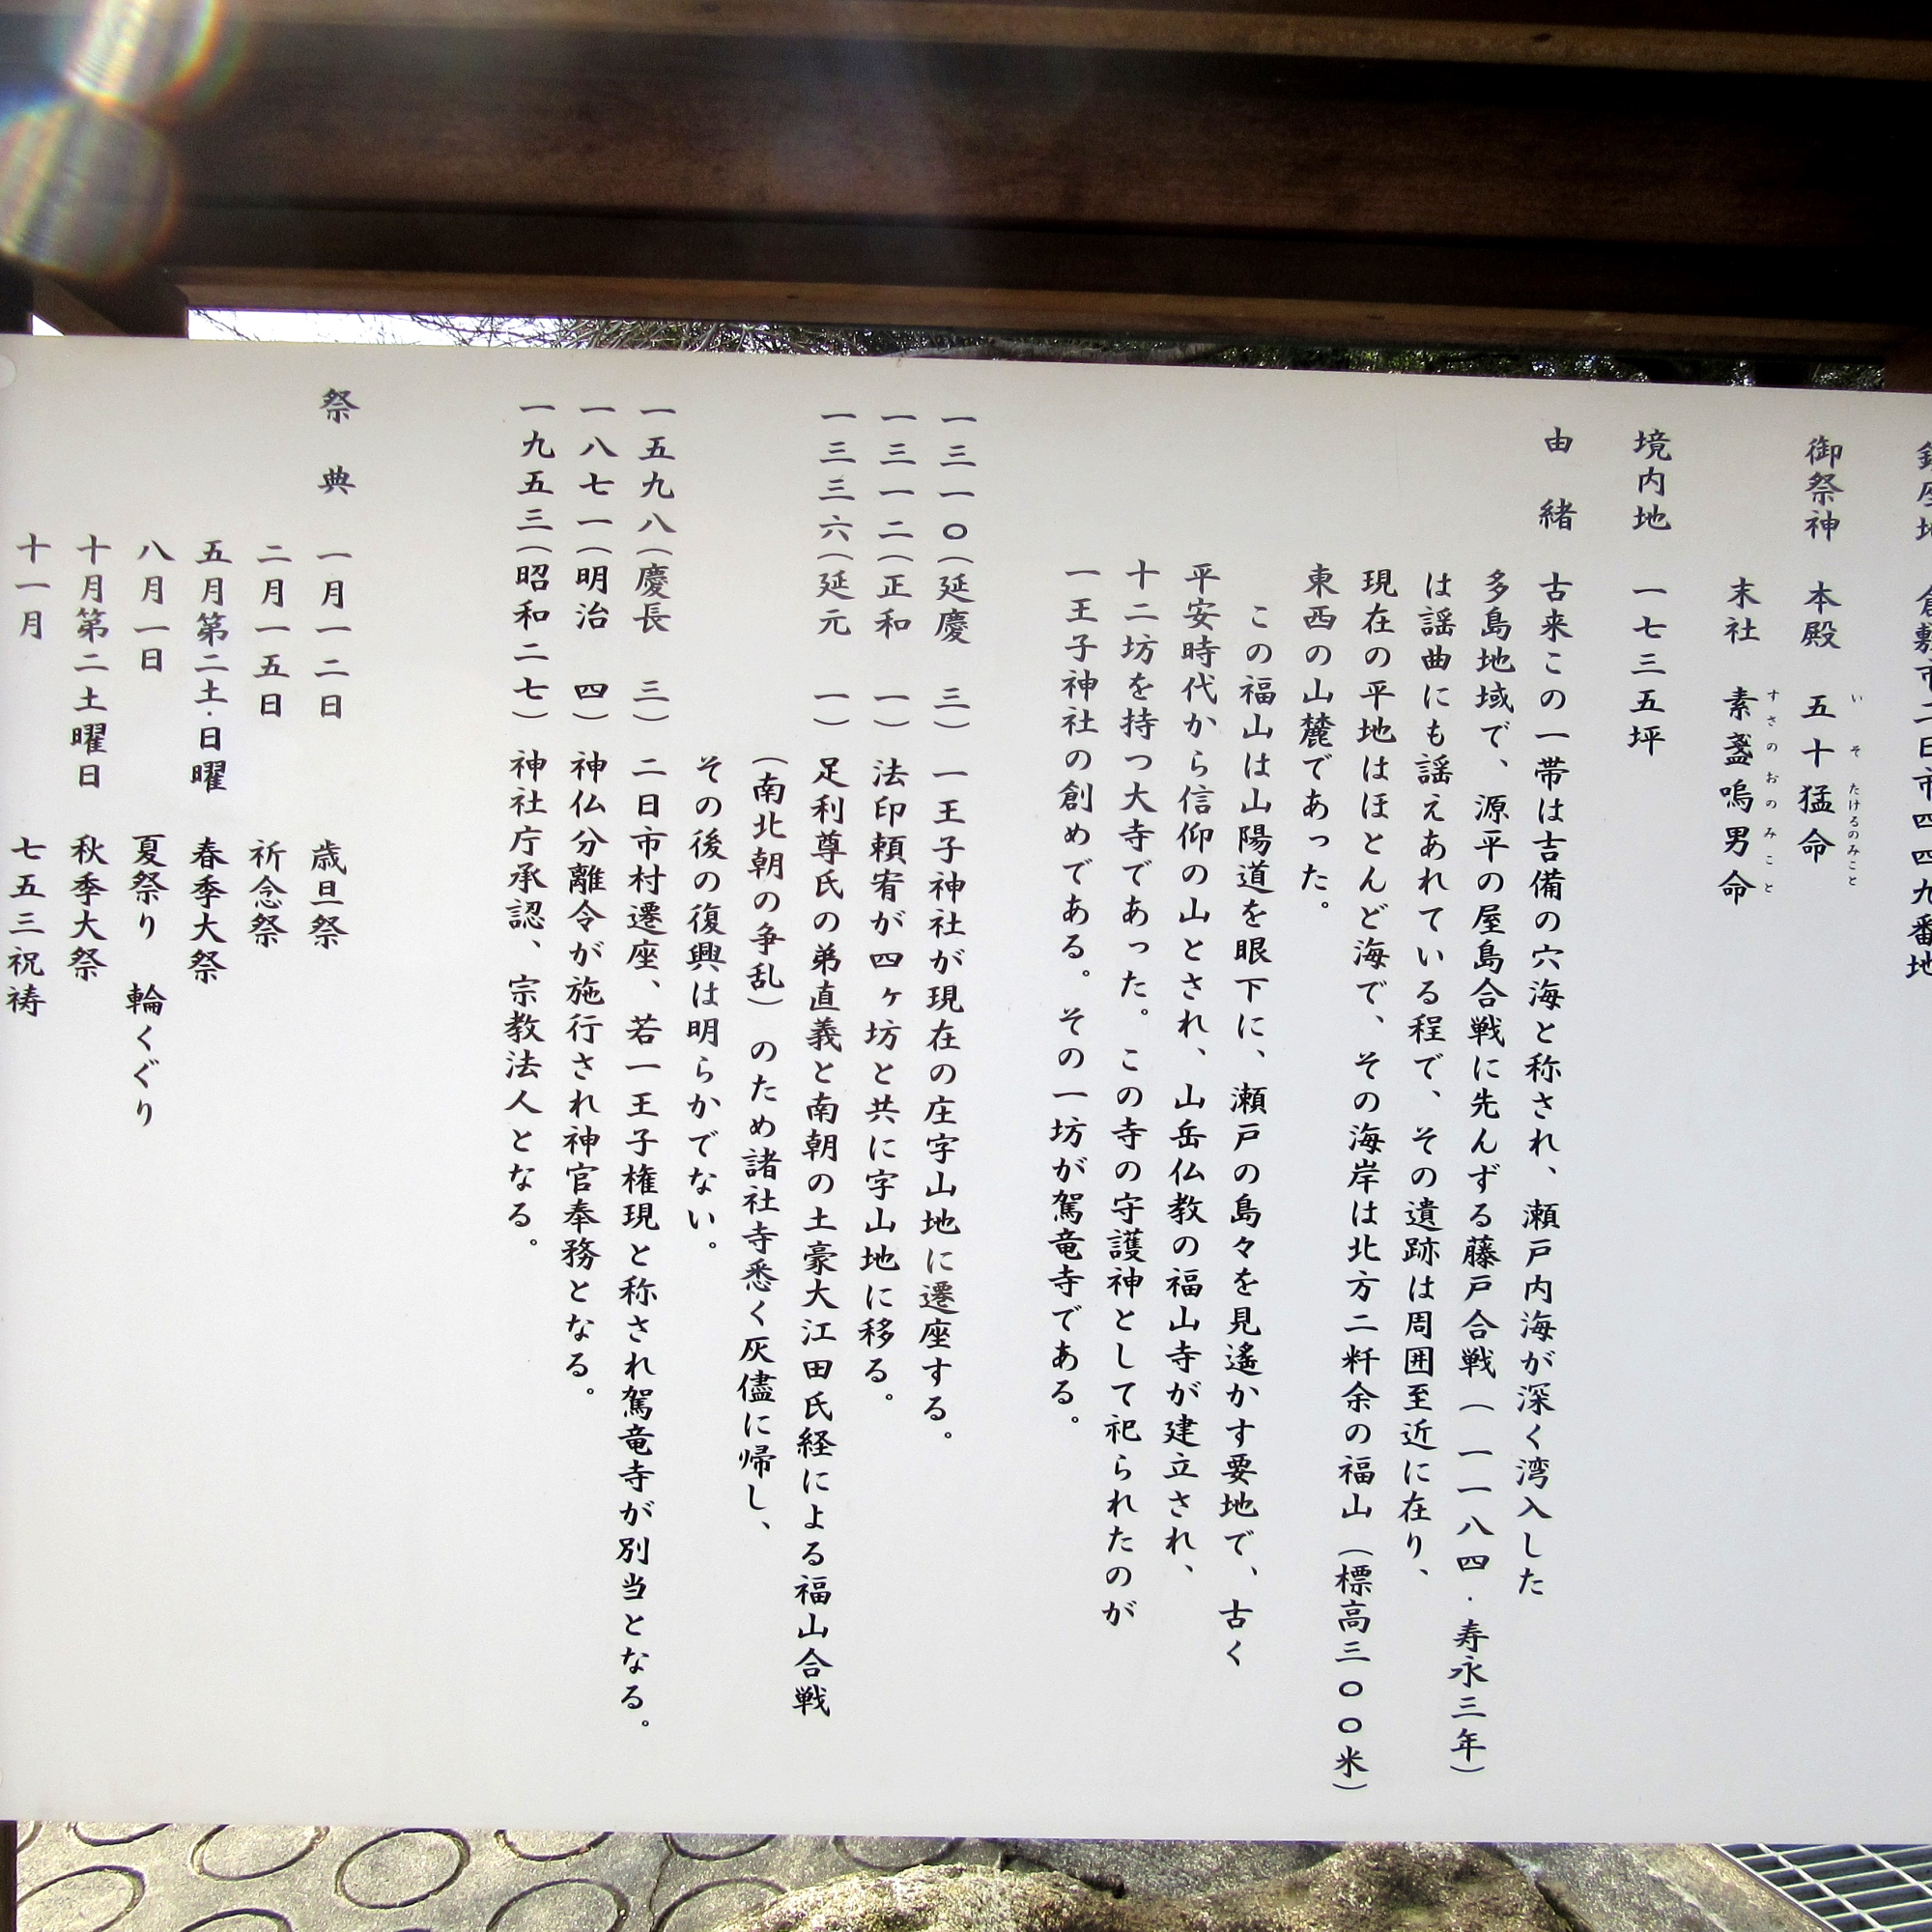 鎮座地　倉敷市二日市四四九番地
御祭神　本殿　五十猛命
いそたけるのみこと
末社　素盞嗚男命
すさのおのみこと
境内地　一七三五坪
由緒　古来この一帯は吉備の穴海と称され、瀬戸内海が深く湾入した
多島地域で、源平の屋島合戦に先んずる藤戸合戦（一一八四・寿永三年）
は謡曲にも謡えあれている程で、その遺跡は周囲至近に在り、
現在の平地はほとんど海で、その海岸は北方二粁余の福山（標高三〇〇米）
東西の山麓であった。
この福山は山陽道を眼下に、瀬戸の島々を見遙かす要地で、古く
平安時代から信仰の山とされ、山岳仏教の福山寺が建立され、
十二坊を持つ大寺であった。この寺の守護神として祀られたのが
一王子神社の創めである。その一坊が駕竜寺である。
一三一〇（延慶　三）　一王子神社が現在の庄字山地に遷座する。
一三一二（正和　一）　法印頼宥が四ヶ坊と共に字山地に移る。
一三三六（延元　一）　足利尊氏の弟直義と南朝の土豪大江田氏経による福山合戦
（南北朝の争乱）のため諸社寺悉く灰儘に帰し、
その後の復興は明らかでない。
一五九八（慶長　三）　二日市村遷座、若一王子権現と称され駕竜寺が別当となる。
一八七一（明治　四）　神仏分離令が施行され神官奉務となる。
一九五三（昭和二七）　神社庁承認、宗教法人となる。
祭典　一月一二日　歳旦祭
二月一五日　祈念祭
五月第二土・日曜　春季大祭
八月一日　夏祭り　輪くぐり
十月第二土曜日　秋季大祭
十一月　七五三祝祷